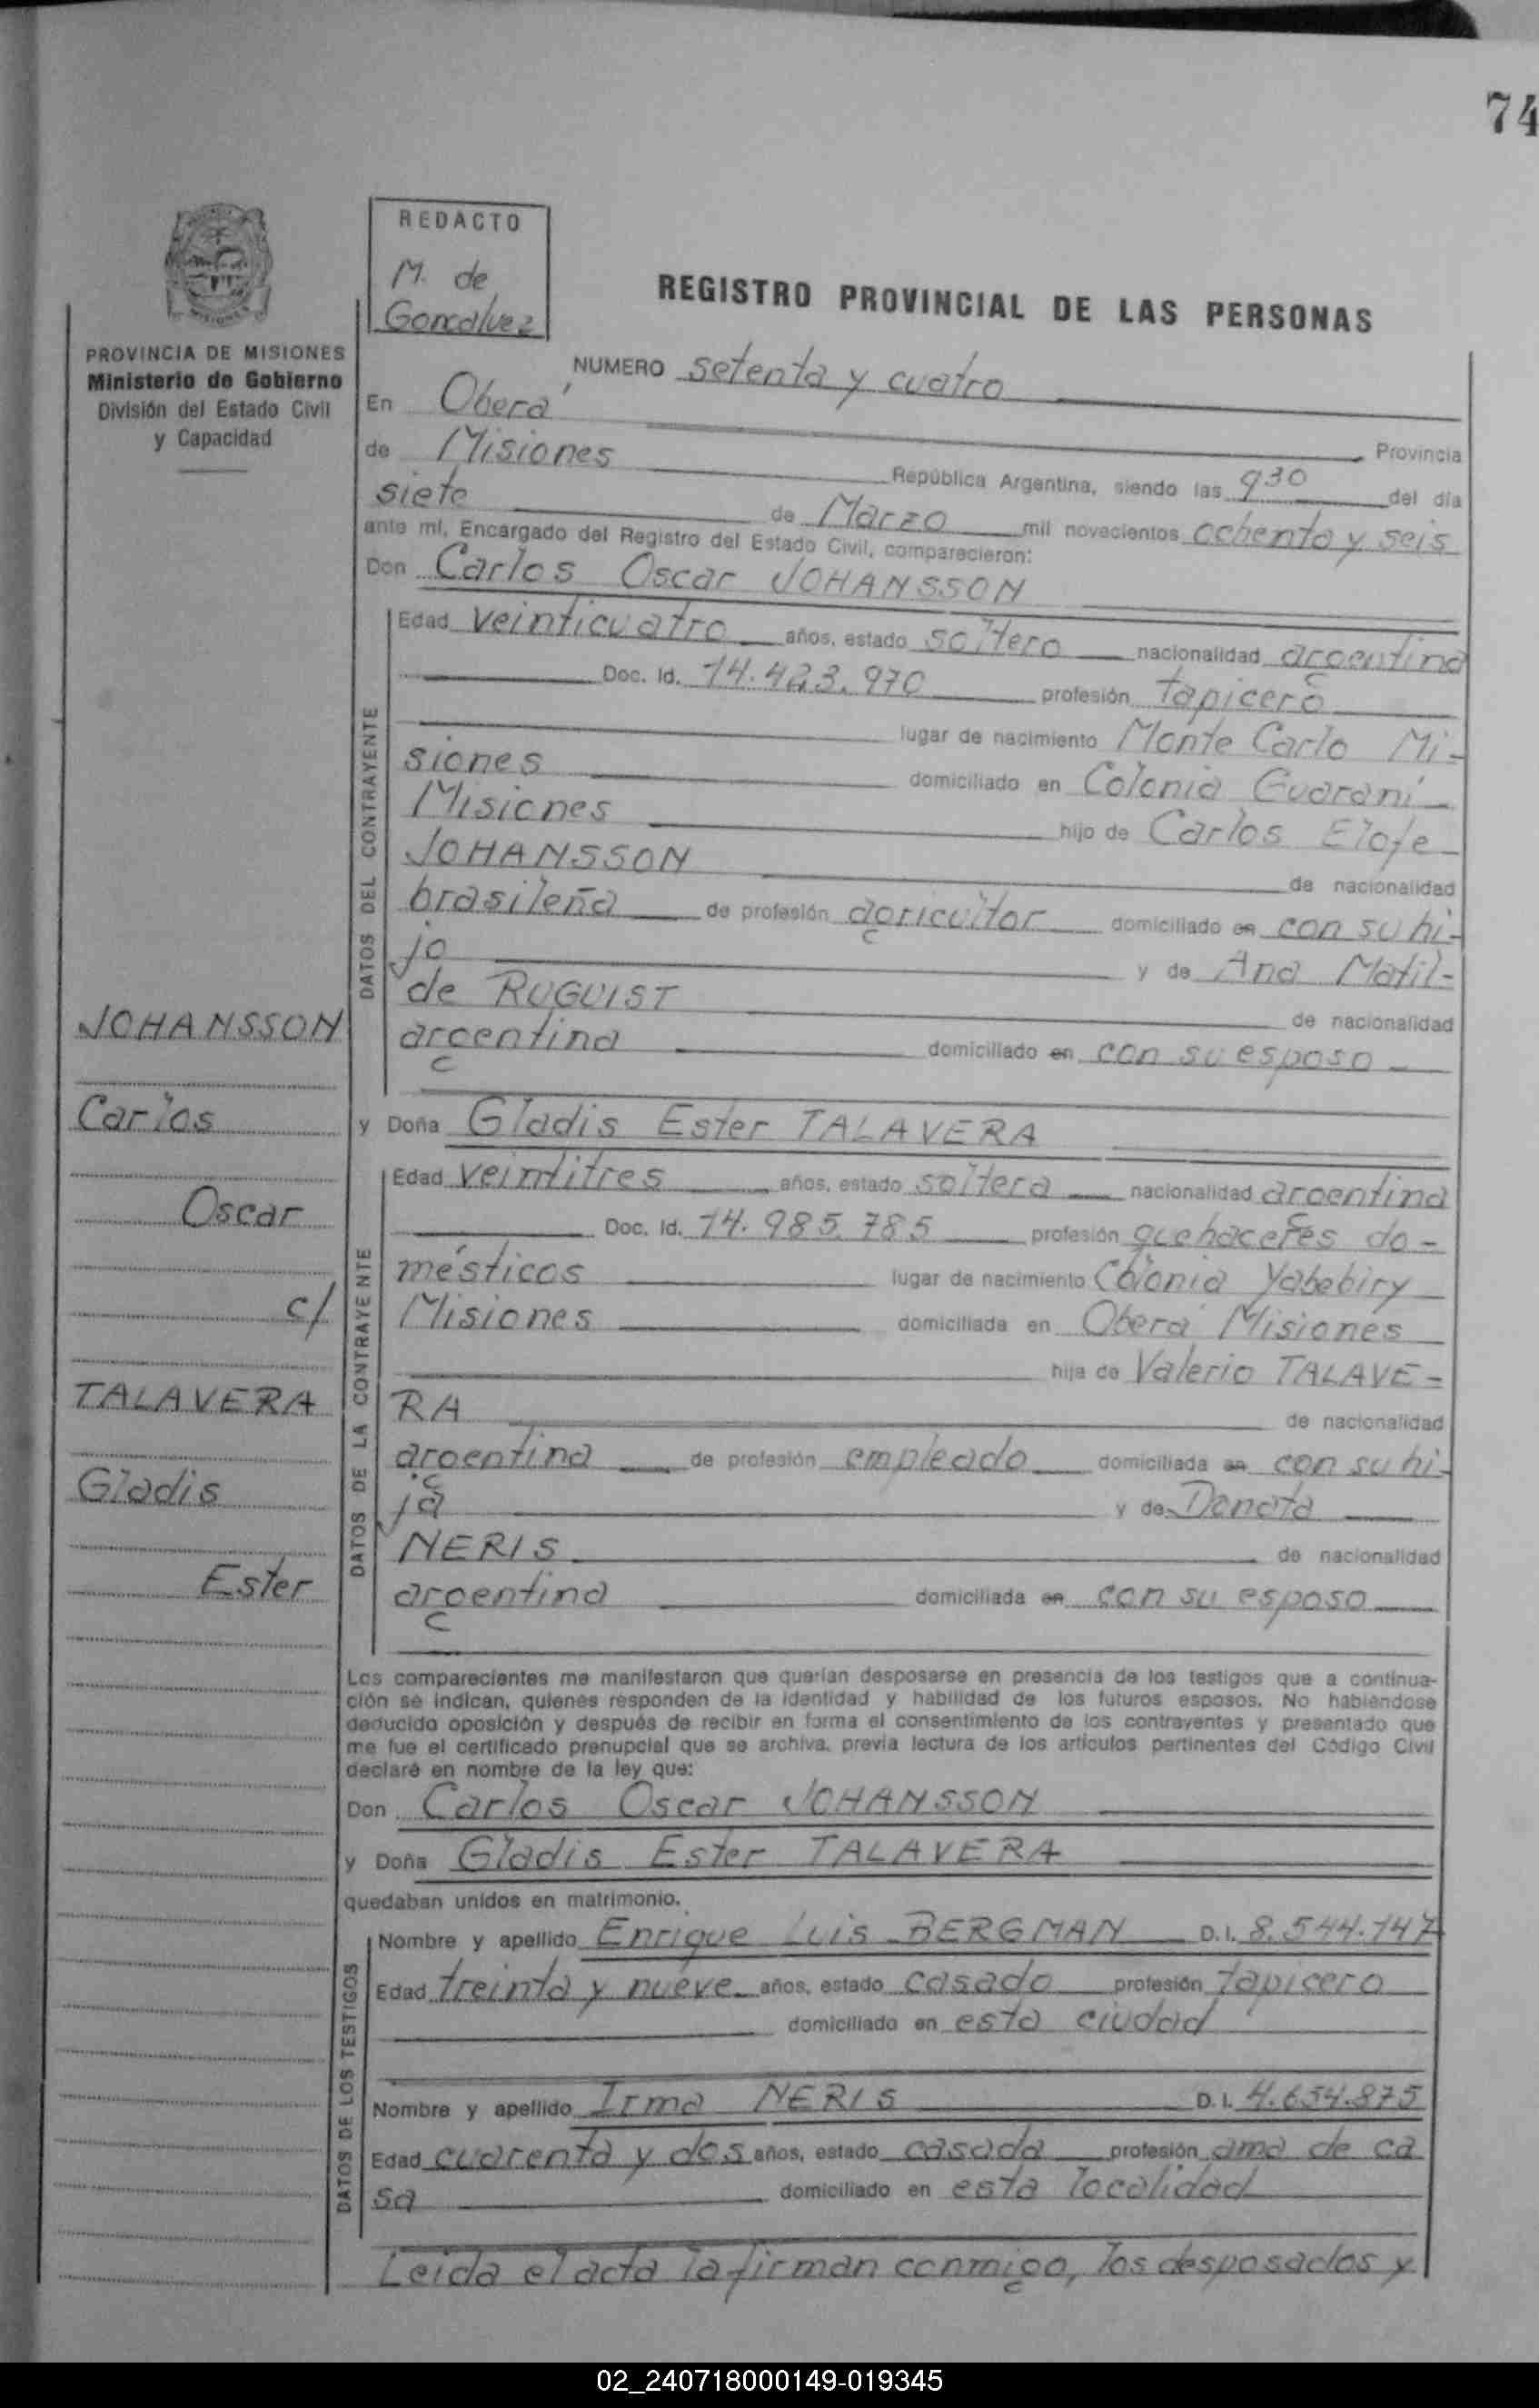 74
REDACTO
M. de
Goncalvez
REGISTRO PROVINCIAL DE LAS PERSONAS
PROVINCIA DE MISIONES
Ministerio de Gobierno
División del Estado Civil
y Capacidad
NUMERO setenta y cuatro
En Oberá
Provincia
de Misiones República Argentina, siendo las 930 del día
siete de Marzo mil novecientos ochenta y seis
ante mí, Encargado del Registro del Estado Civil, comparecieron:
Don Carlos Oscar JOHANSSON
DATOS DEL CONTRAYENTE
Edad veinticuatro años, estado soltero nacionalidad argentina
Doc. Id. 14.423.970 profesión tapicero
lugar de nacimiento Monte Carlo Mi-
siones domiciliado en Colonia Guaraní
Misiones hijo de Carlos Elofe
JOHANSSON de nacionalidad
brasileña de profesión agricultor domiciliado en con su hi-
jo y de Ana Matil-
de RUGUIST de nacionalidad
argentina domiciliado en con su esposo
y Doña Gladis Ester TALAVERA
DATOS DE LA CONTRAYENTE
Edad veintitres años, estado soltera nacionalidad argentina
Doc. Id. 14.985.785 profesión quehaceres do-
mésticos lugar de nacimiento Colonia Yabebiry
Misiones domiciliada en Oberá Misiones
hija de Valerio TALAVE-
RA de nacionalidad
argentina de profesión empleado domiciliada en con su hi-
ja y de Donata
NERIS de nacionalidad
argentina domiciliada en con su esposo
JOHANSSON
Carlos
Oscar
c/
TALAVERA
Gladis
Ester
Los comparecientes me manifestaron que querían desposarse en presencia de los testigos que a continua-
ción se indican, quienes responden de la identidad y habilidad de los futuros esposos. No habiéndose
deducido oposición y después de recibir en forma el consentimiento de los contrayentes y presentado que
me fue el certificado prenupcial que se archiva, previa lectura de los artículos pertinentes del Código Civil
declaré en nombre de la ley que:
Don Carlos Oscar JOHANSSON
y Doña Gladis Ester TALAVERA
quedaban unidos en matrimonio.
DATOS DE LOS TESTIGOS
Nombre y apellido Enrique Luis BERGMAN D.I. 8.544.147
Edad treinta y nueve años, estado casado profesión tapicero
domiciliado en esta ciudad
Nombre y apellido Irma NERIS D.I. 4.634.875
Edad cuarenta y dos años, estado casada profesión ama de ca
sa domiciliado en esta localidad
Leida el acta la firman conmigo, los desposados y
02_240718000149-019345